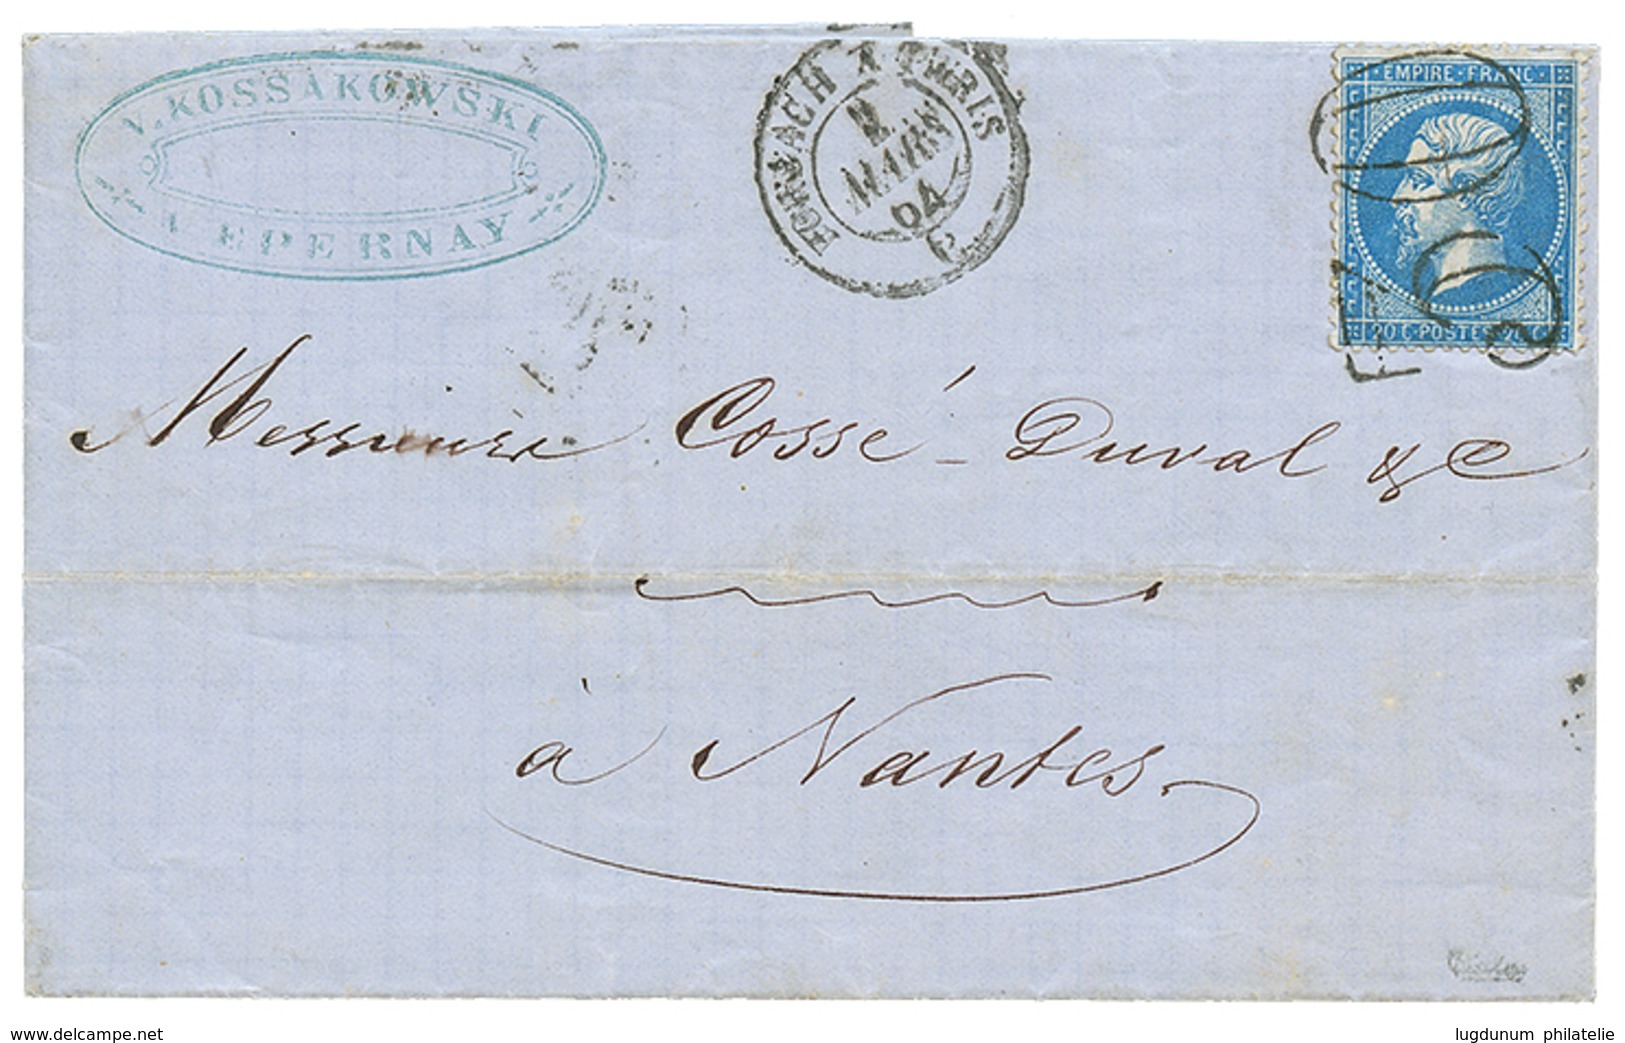 V. KOSSAKOWSKI
A EPERNAY
FORBACH A PARIS
2
MARS
64
EMPIRE · FRANC
20 C · POSTES · 20 C
Messieurs Cossé - Duval & C
à Nantes.
www.delcampe.net
lugdunum philatelie